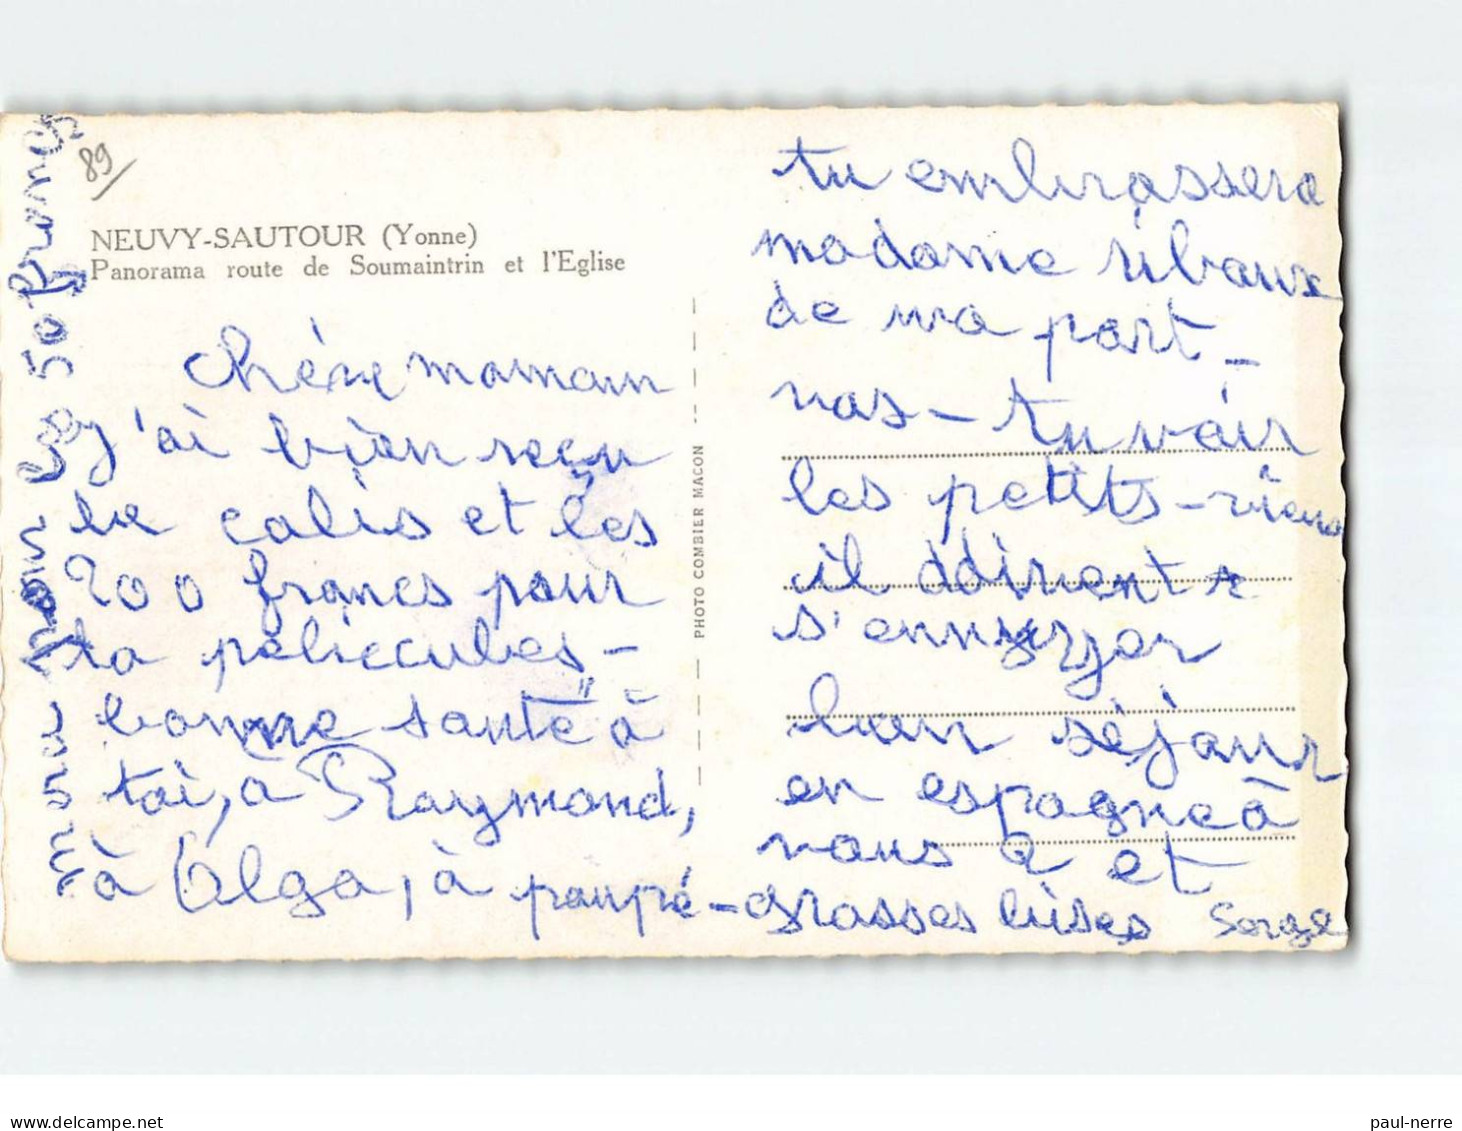 89
NEUVY-SAUTOUR (Yonne)
Panorama route de Soumaintrin et l'Eglise
chère maman
j'ai bien reçu
le colis et les
200 francs pour
ta peliecules -
bonne santé à
toi, à Raymond,
à Olga, à poupé -
PHOTO COMBIER MACON
tu embrassera
madame ribaux
de ma part -
nas - tu voir
les petits-
il ddoivent
s'ennuyer
bon séjour
en espagne à
vous 2 et
grasses bises Serge
merci pour les 50 francs
paul-nerre